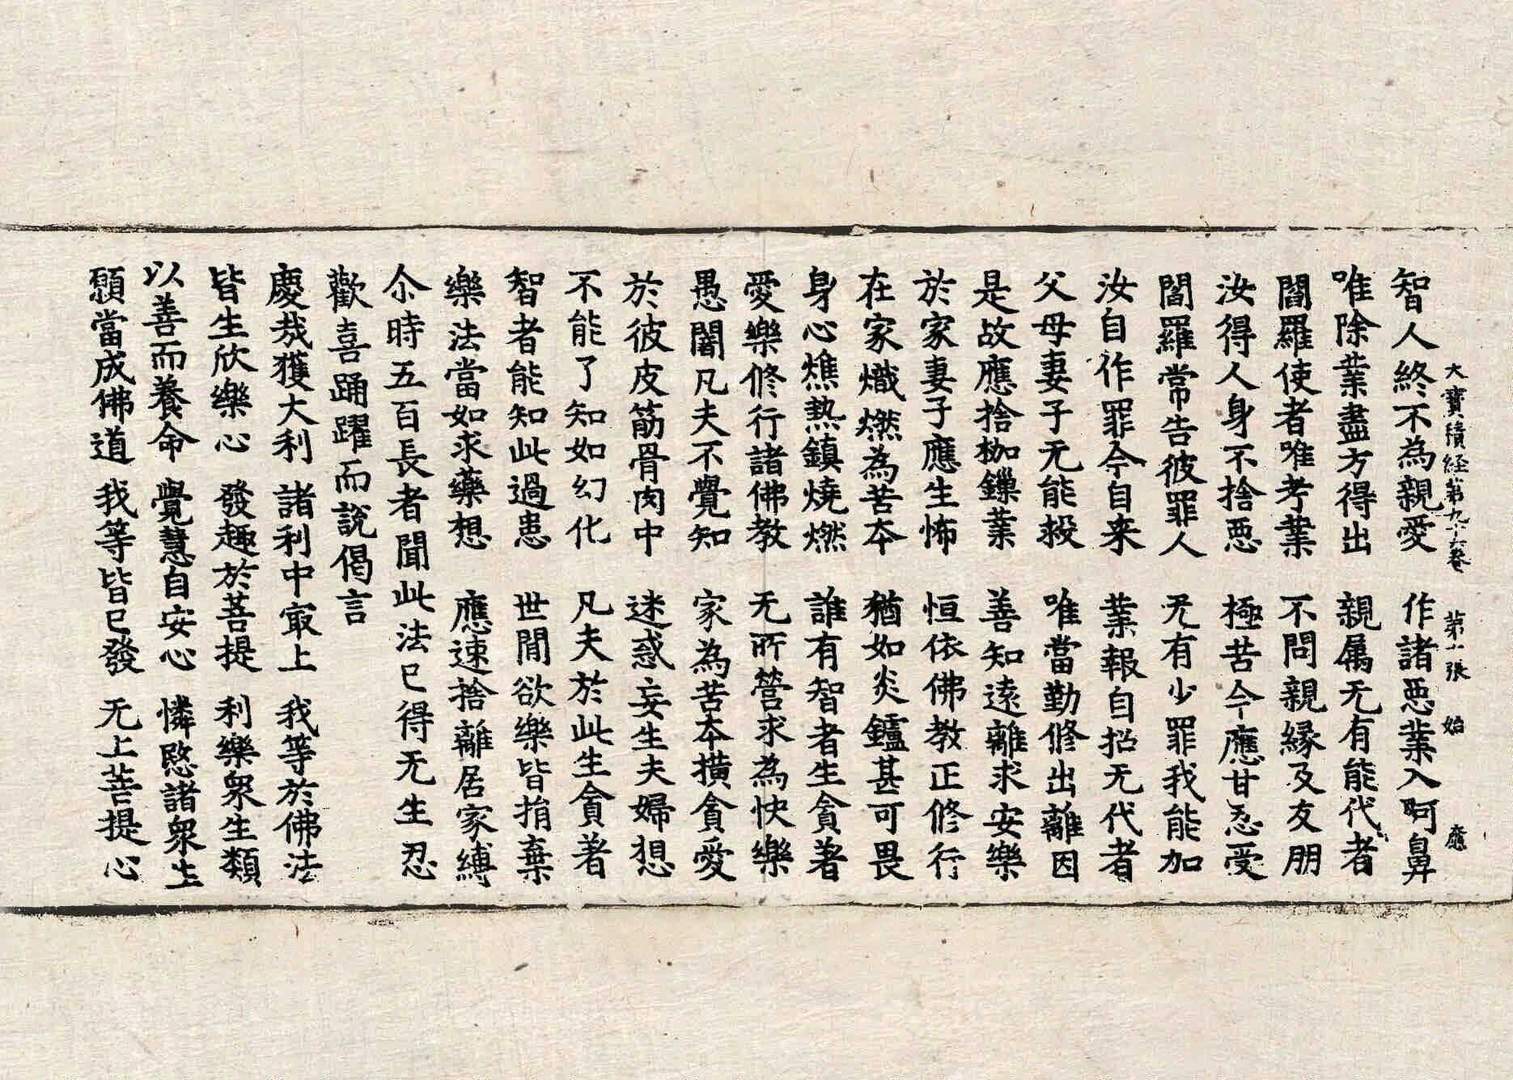 大寶積経第九十六卷 第十張 始 應
智人終不為親愛 作諸惡業入阿鼻
唯除業盡方得出 親属无有能代者
閻羅使者唯考業 不問親縁及友朋
汝得人身不捨惡 極苦今應甘忍受
閻羅常告彼罪人 无有少罪我能加
汝自作罪今自来 業報自招无代者
父母妻子无能救 唯當勤修出離因
是故應捨枷鏁業 善知遠離求安樂
於家妻子應生怖 恒依佛教正修行
在家熾燃為苦夲 猶如炎鑪甚可畏
身心燋熱鎮燒燃 誰有智者生貪著
愛樂修行諸佛教 无所營求為快樂
愚闇凡夫不覺知 家為苦夲橫貪愛
於彼皮筋骨肉中 迷惑妄生夫婦想
不能了知如幻化 凡夫於此生貪著
智者能知此過患 世閒欲樂皆捐棄
樂法當如求藥想 應速捨離居家縛
尒時五百長者聞此法已得无生忍
歡喜踊躍而說偈言
慶哉獲大利 諸利中㝡上 我等於佛法
皆生欣樂心 發趣於菩提 利樂衆生類
以善而養命 覺慧自安心 憐愍諸衆生
願當成佛道 我等皆已發 无上菩提心